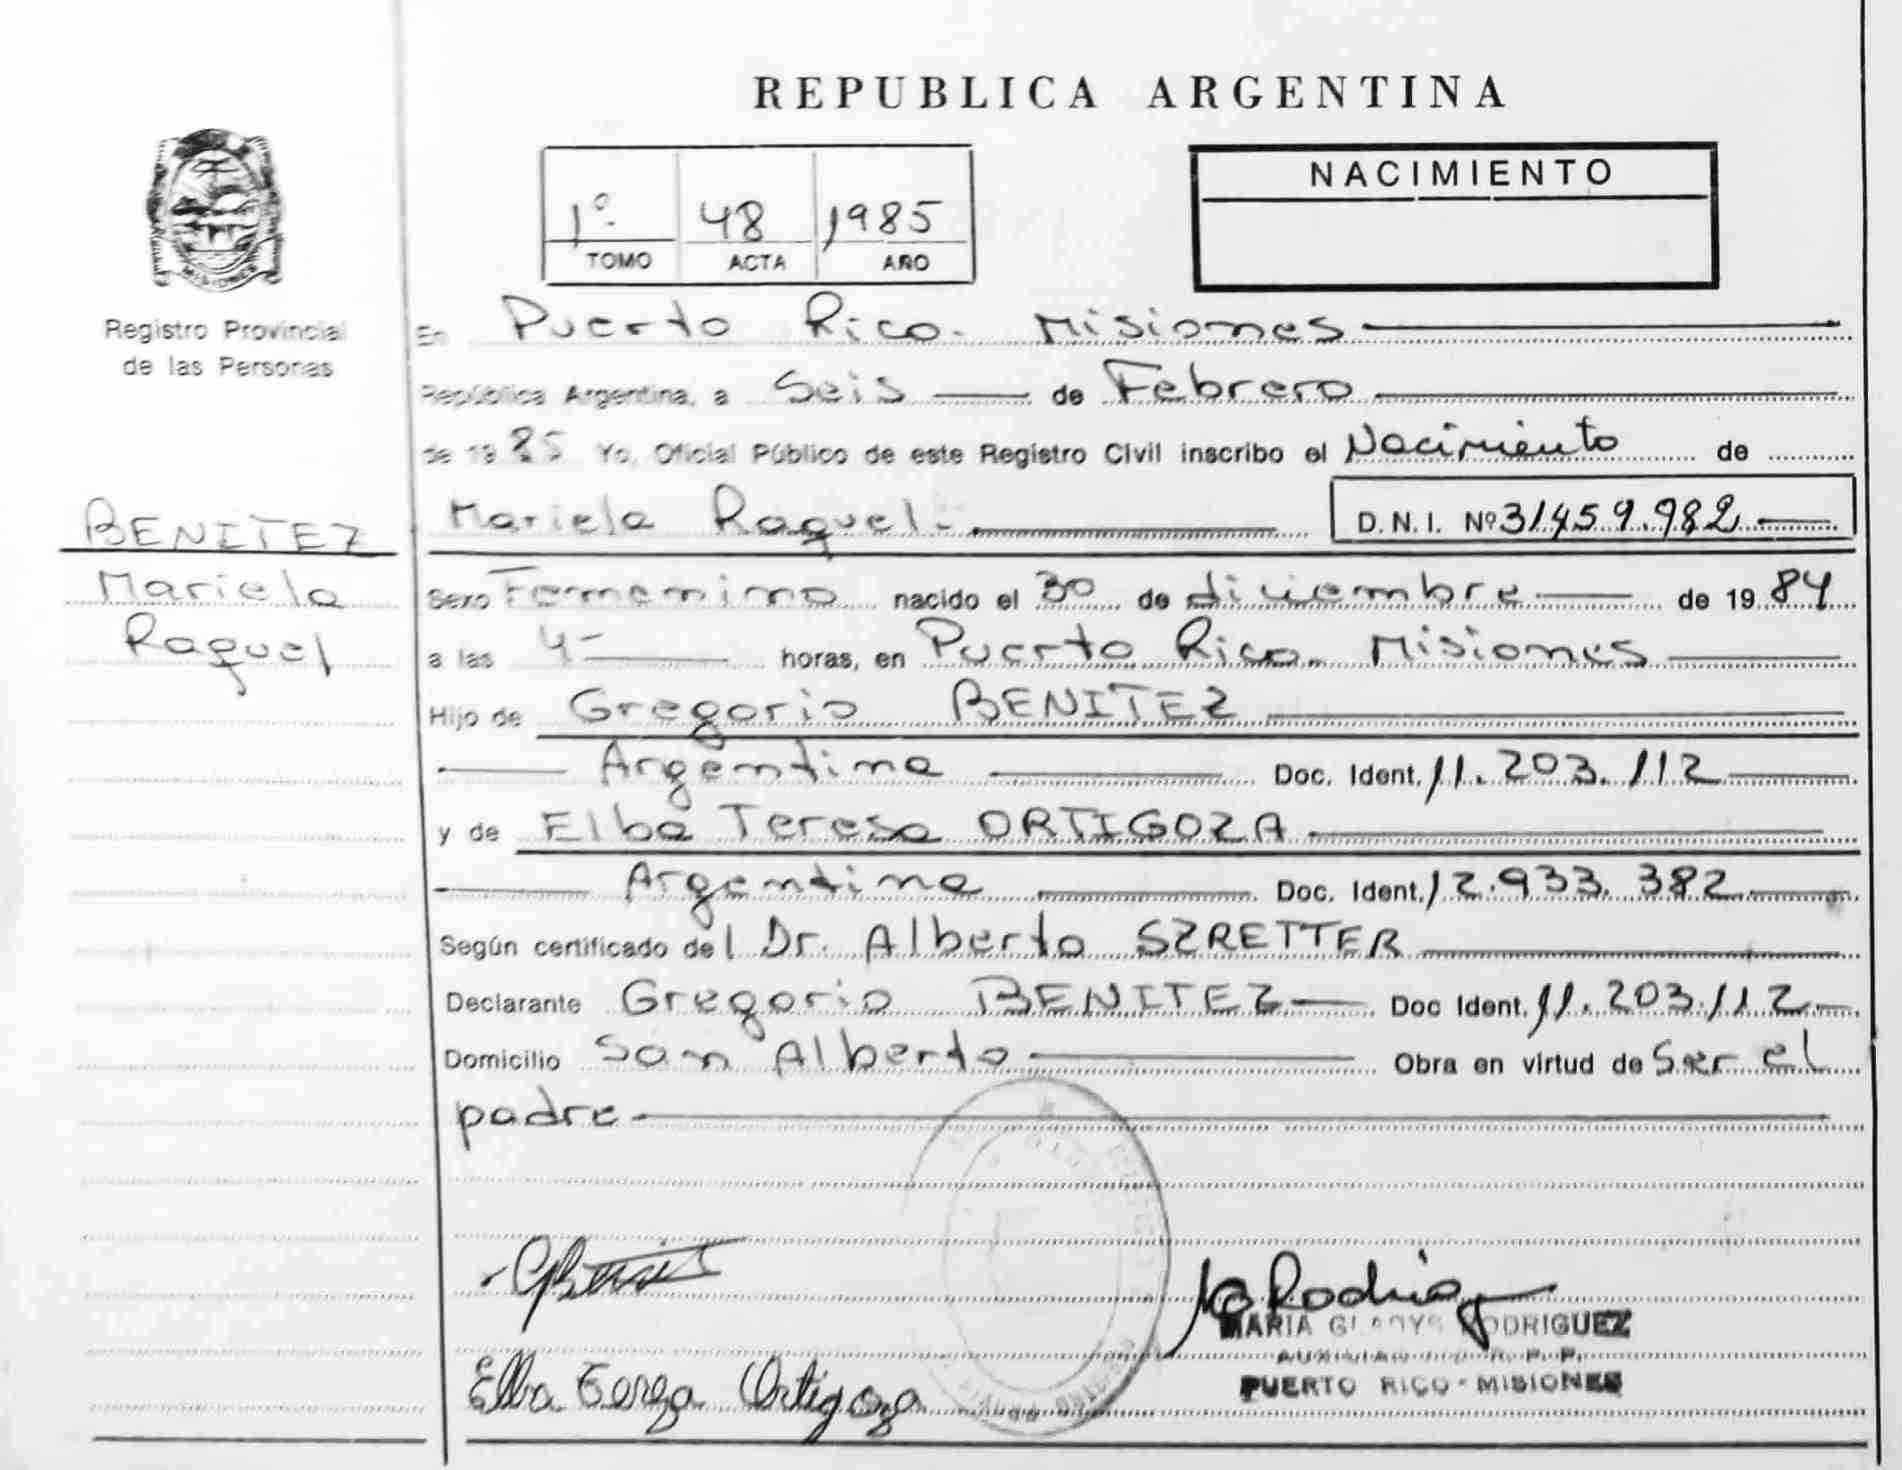 REPUBLICA ARGENTINA
MISIONES
Registro Provincial
de las Personas
1º 48 1985
TOMO ACTA AÑO
NACIMIENTO
En Puerto Rico - Misiones
República Argentina, a Seis de Febrero
de 19 85 Yo, Oficial Público de este Registro Civil inscribo el Nacimiento de
BENITEZ
Mariela
Raquel
Mariela Raquel.- D.N.I. Nº 31.459.982
Sexo Femenino nacido el 30 de diciembre de 19 84
a las 4- horas, en Puerto Rico - Misiones
Hijo de Gregorio BENITEZ
Argentina Doc. Ident. 11.203.112
y de Elba Teresa ORTIGOZA
Argentina Doc. Ident. 12.933.382
Según certificado del Dr. Alberto SZRETTER
Declarante Gregorio BENITEZ Doc Ident. 11.203.112
Domicilio San Alberto Obra en virtud de Ser el
padre
Elba Tereza Ortigoza
Rodriguez
MARIA GLADYS RODRIGUEZ
AUXILIAR R. P. P.
PUERTO RICO - MISIONES